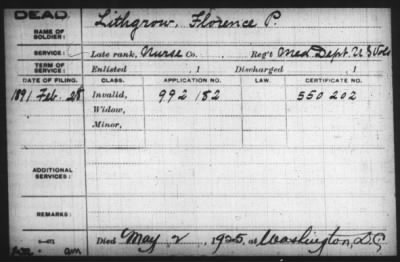 DEAD.
NAME OF SOLDIER: Lithgrow, Florence P.
SERVICE: Late rank, Nurse Co. Reg't Med. Dept. U S Vols
TERM OF SERVICE: Enlisted , 1 Discharged , 1
DATE OF FILING. CLASS. APPLICATION NO. LAW. CERTIFICATE NO.
1891 Feb. 28 Invalid, 992 182 550 202
Widow,
Minor,
ADDITIONAL SERVICES:
REMARKS:
Died May 2, 1925, at Washington, D.C.